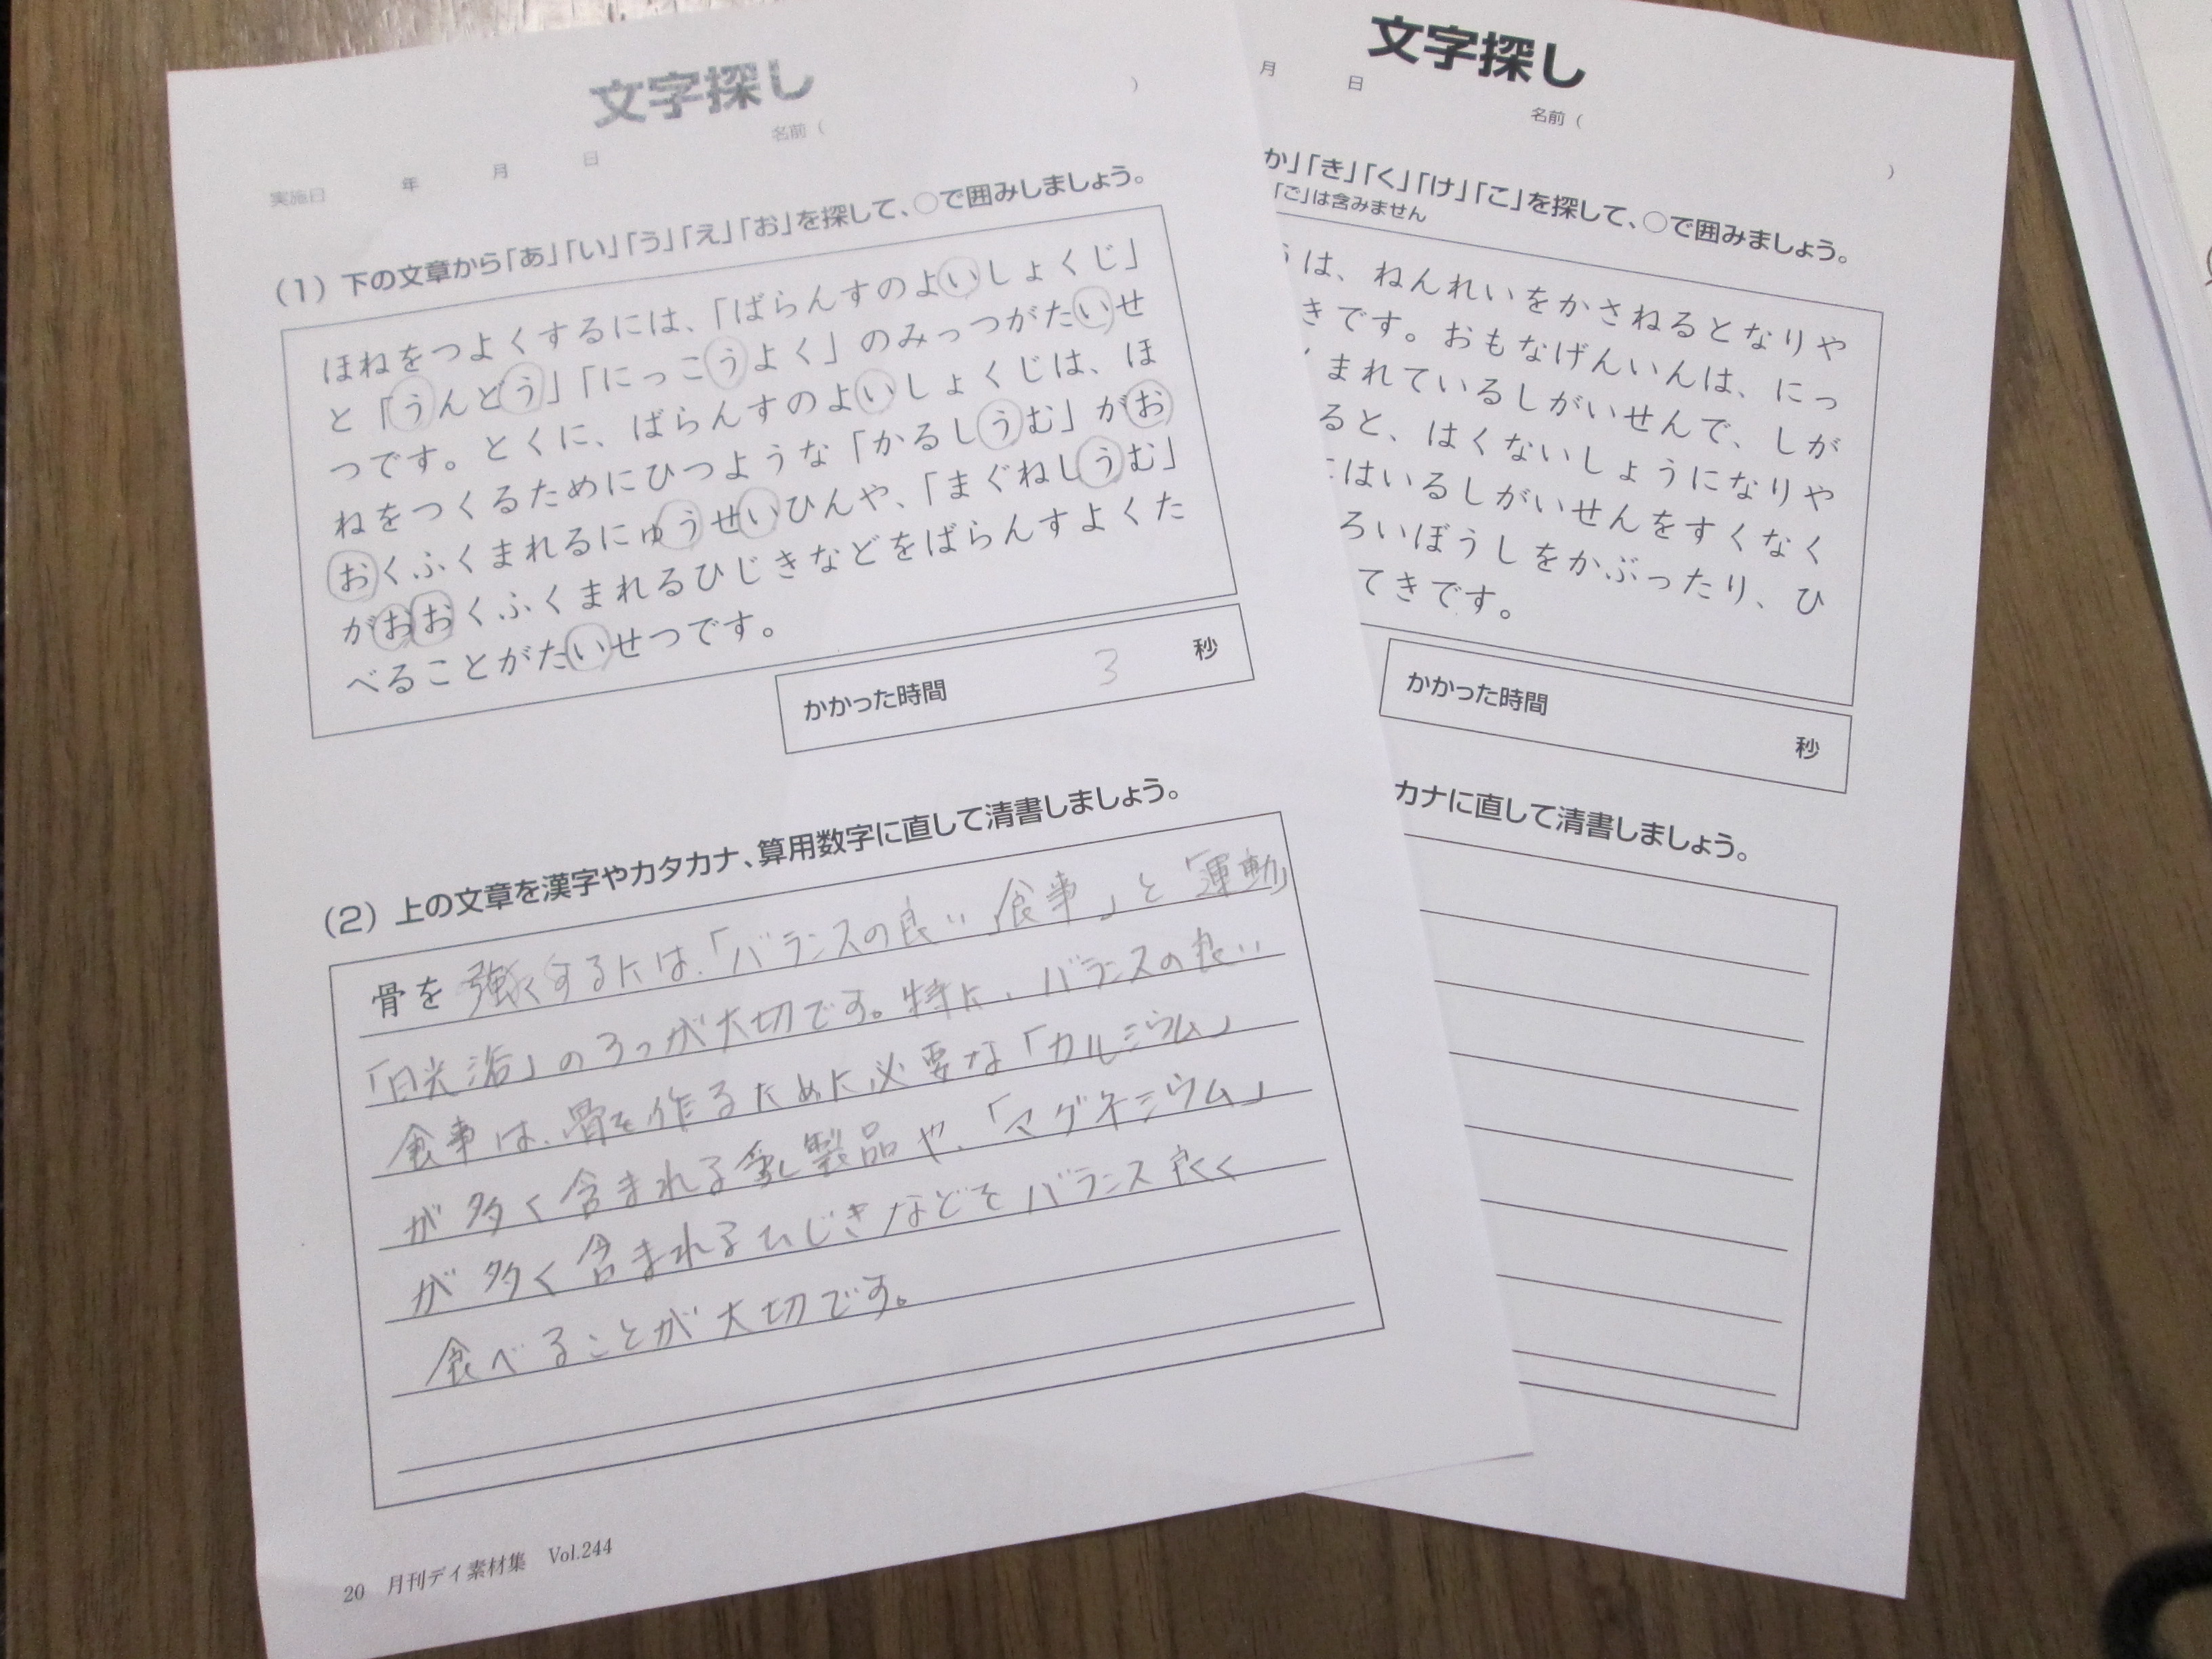 文字探し
実施日 年 月 日 名前( )
(1) 下の文章から「あ」「い」「う」「え」「お」を探して、○で囲みしましょう。
ほねをつよくするには、「ばらんすのよいしょくじ」
と「うんどう」「にっこうよく」のみっつがたいせ
つです。とくに、ばらんすのよいしょくじは、ほ
ねをつくるためにひつような「かるしうむ」がお
おくふくまれるにゅうせいひんや、「まぐねしうむ」
がおおくふくまれるひじきなどをばらんすよくた
べることがたいせつです。
かかった時間 3 秒
(2) 上の文章を漢字やカタカナ、算用数字に直して清書しましょう。
骨を強くするには、「バランスの良い食事」と「運動」
「日光浴」の3つが大切です。特に、バランスの良い
食事は、骨を作るために必要な「カルシウム」
が多く含まれる乳製品や、「マグネシウム」
が多く含まれるひじきなどをバランス良く
食べることが大切です。
20 月刊デイ素材集 Vol.244
文字探し
月 日 名前( )
か」「き」「く」「け」「こ」を探して、○で囲みましょう。
「ご」は含みません
は、ねんれいをかさねるとなりや
きです。おもなげんいんは、にっ
まれているしがいせんで、しが
ると、はくないしょうになりや
はいるしがいせんをすくなく
ろいぼうしをかぶったり、ひ
てきです。
かかった時間 秒
カナに直して清書しましょう。